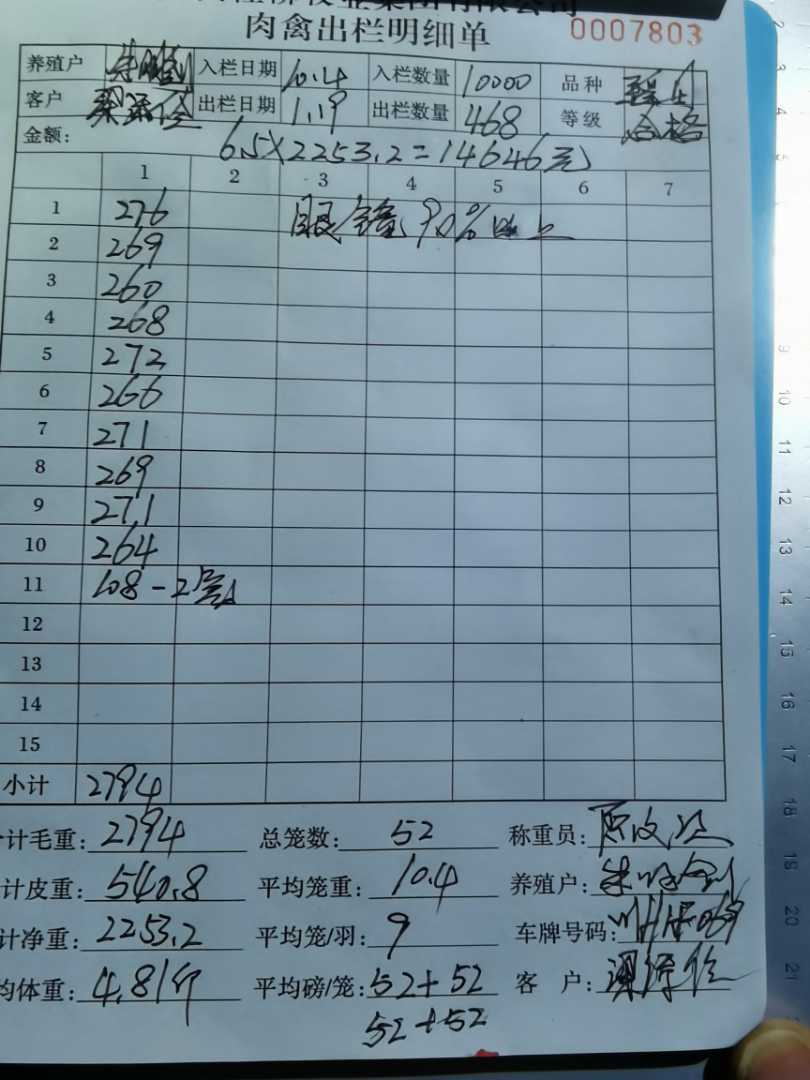 肉禽出栏明细单 0007803
养殖户 入栏日期 10.4 入栏数量 10000 品种
客户 出栏日期 1.19 出栏数量 468 等级 合格
金额: 6.5×2253.2=14646元
1 2 3 4 5 6 7
1 276 眼含量90%以上
2 269
3 260
4 268
5 272
6 266
7 271
8 269
9 271
10 264
11 108-2笼
12
13
14
15
小计 2794
计毛重: 2794 总笼数: 52 称重员:
计皮重: 540.8 平均笼重: 10.4 养殖户:
计净重: 2253.2 平均笼/羽: 9 车牌号码:
均体重: 4.81斤 平均磅/笼: 52+52 客户:
52+52